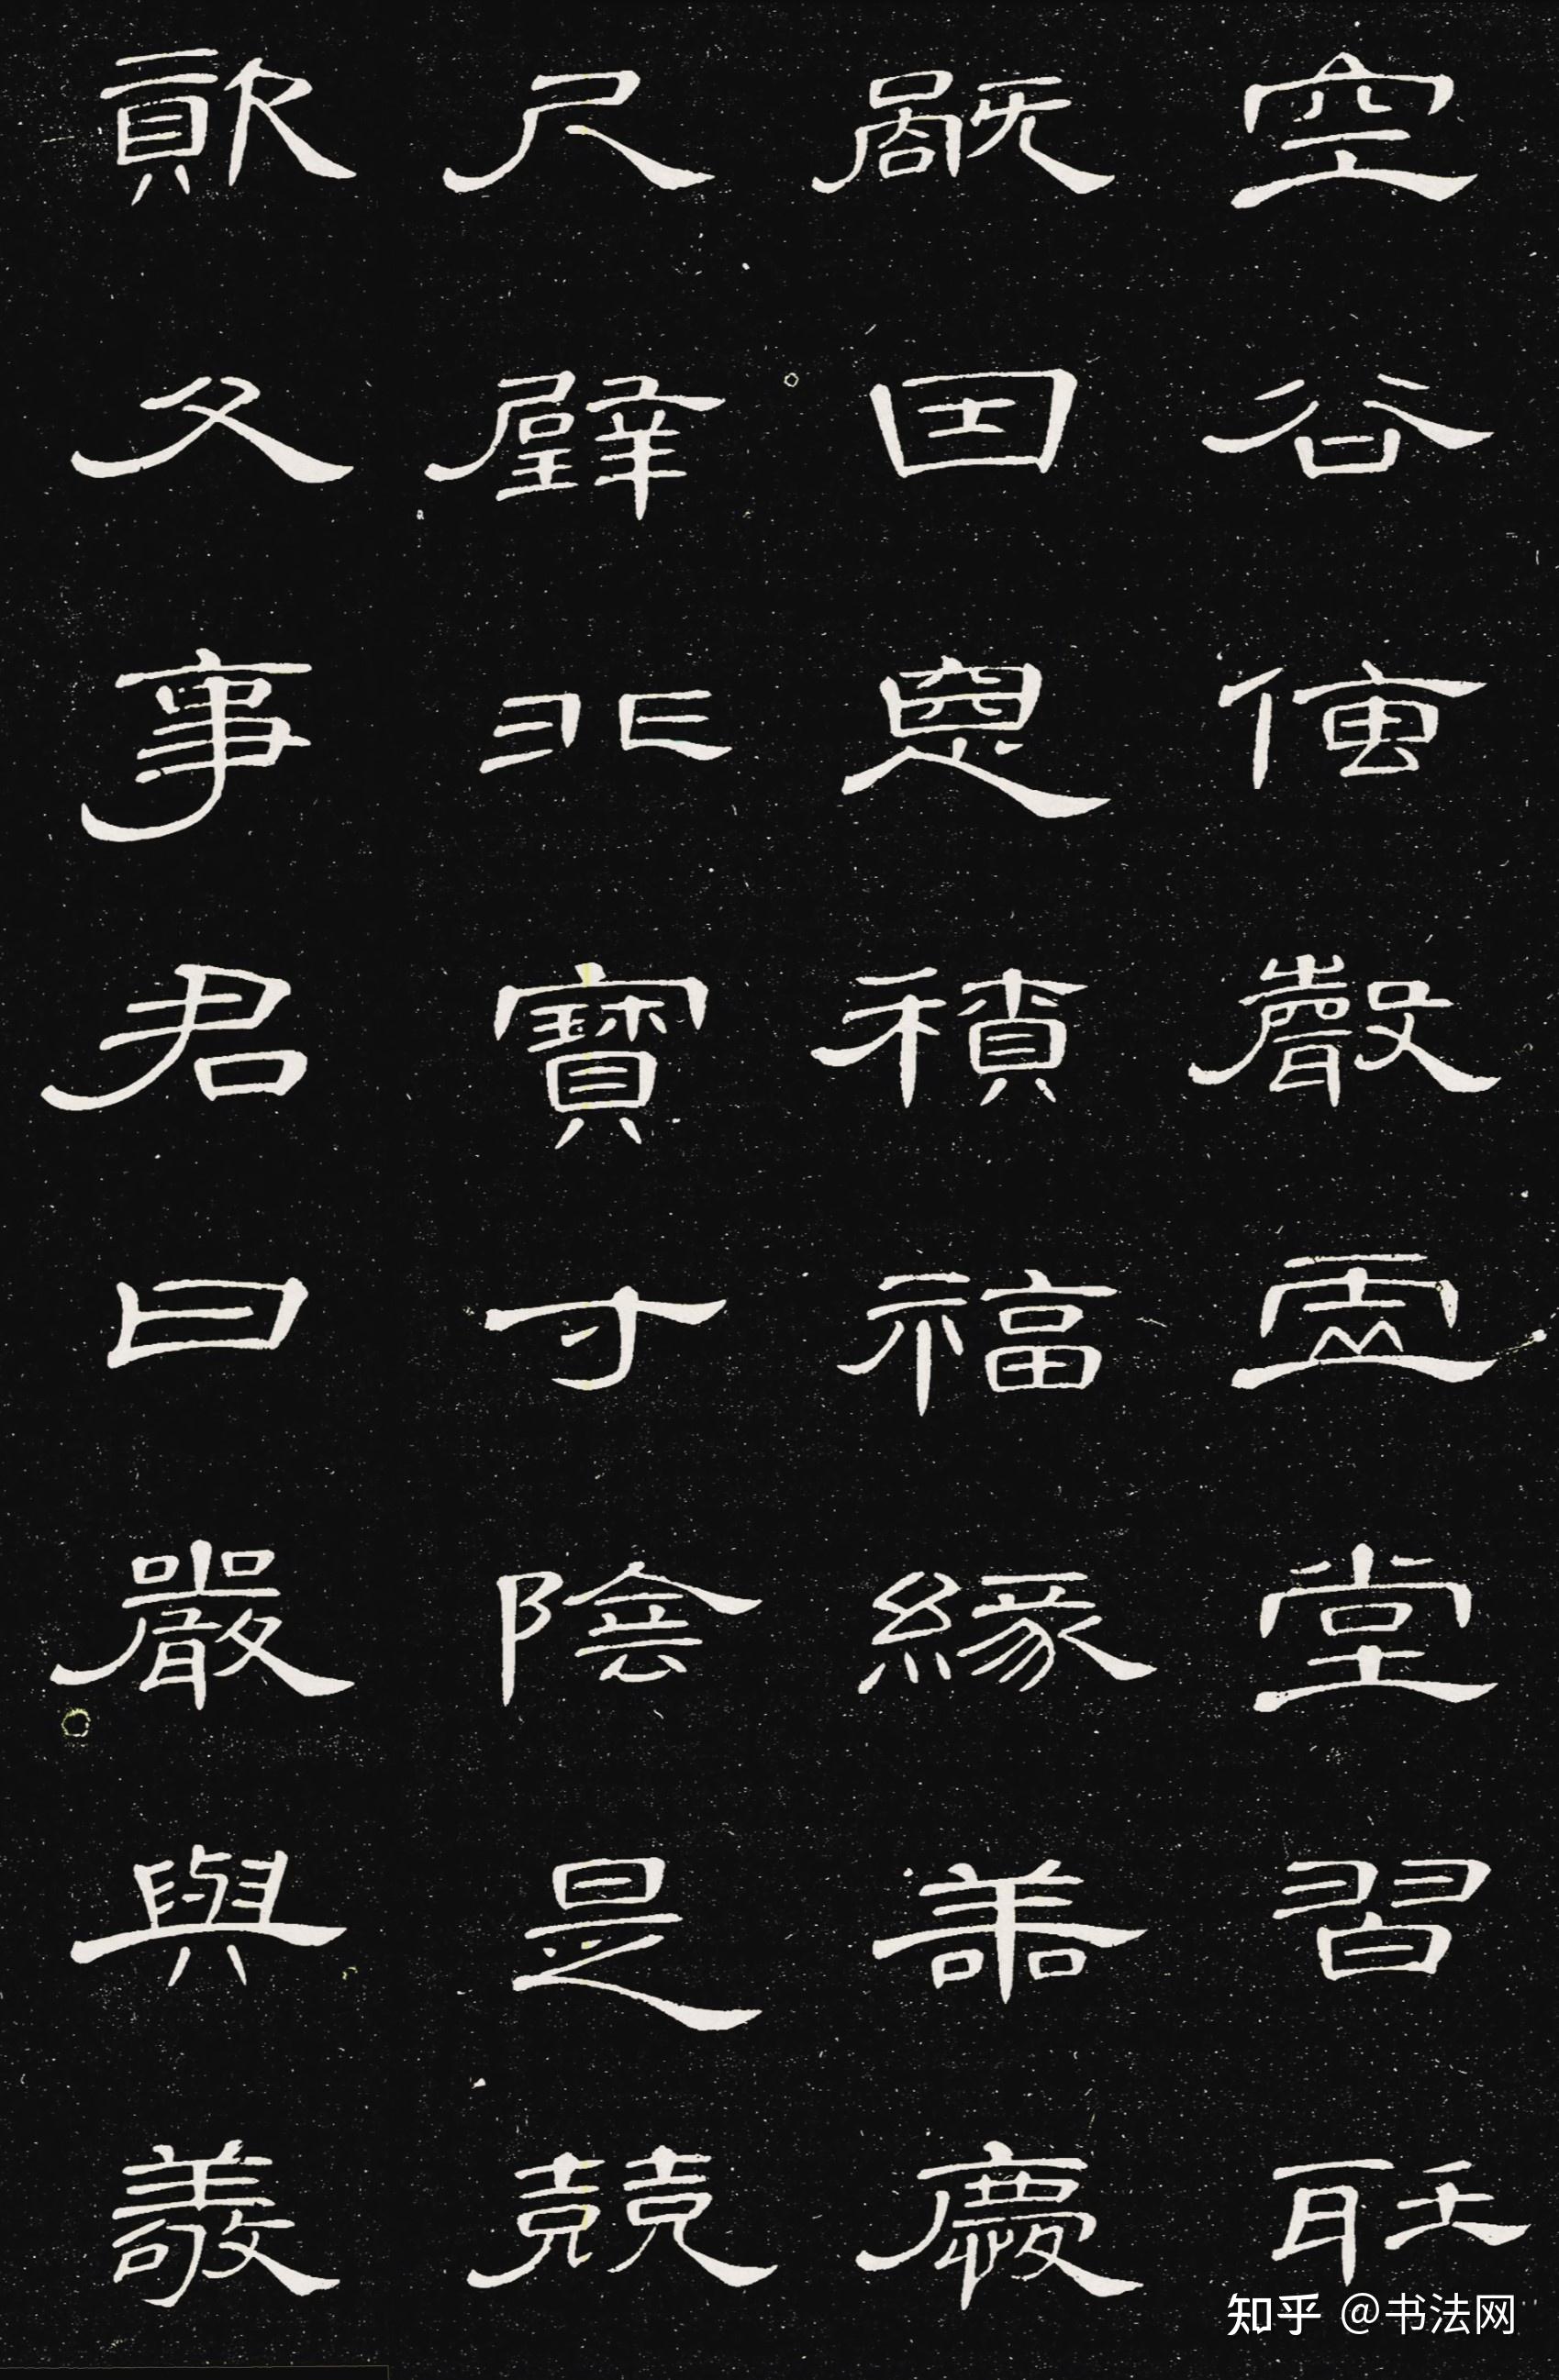 空谷傳聲虛堂習聽
禍因惡積福緣善慶
尺璧非寶寸陰是競
資父事君曰嚴與敬
知乎 @书法网